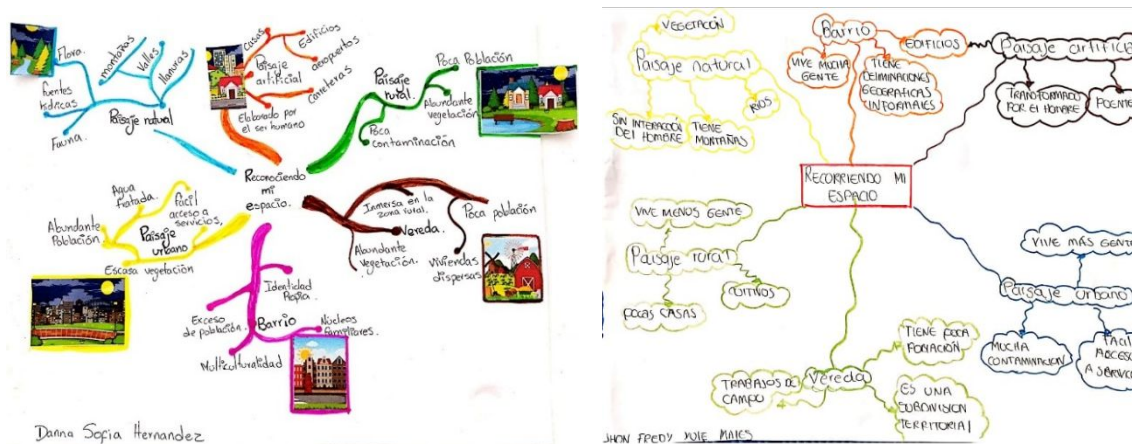 Flora.
fuentes
hídricas
Fauna.
montañas
Valles
llanuras
Paisaje natural
casas
Edificios
aeropuertos
Carreteras
Paisaje
artificial
Elaborado por
el ser humano
Paisaje
rural.
Poca Población
Abundante
vegetación
Poca
contaminación
Reconociendo
mi
espacio.
Agua
tratada.
fácil
acceso a
servicios.
Abundante
Población
Paisaje
urbano
Escasa vegetación
Inmersa en la
zona rural.
Poca población
Vereda.
Abundante
vegetación.
Viviendas
dispersas
Identidad
Propia
Exceso
de población.
Barrio
Núcleos
familiares.
Multiculturalidad
Danna Sofia Hernandez
VEGETACIÓN
Paisaje natural
RIOS
SIN INTERACCIÓN
DEL HOMBRE
TIENE
MONTAÑAS
Barrio
VIVE MUCHA
GENTE
TIENE
DELIMINACIONES
GEOGRAFICAS
INFORMALES
EDIFICIOS
Paisaje artificia
TRANSFORMADO
POR EL HOMBRE
PUENTE
RECORRIENDO MI
ESPACIO
VIVE MENOS GENTE
Paisaje rural
CULTIVOS
POCAS CASAS
VIVE MÁS GENTE
Paisaje urbano
MUCHA
CONTAMINACION
FACIL
ACCESO
A SERVICI
Vereda
TIENE POCA
POBLACIÓN
TRABAJOS DE
CAMPO
ES UNA
SUBDIVISION
TERRITORIAL
JHON FREDY